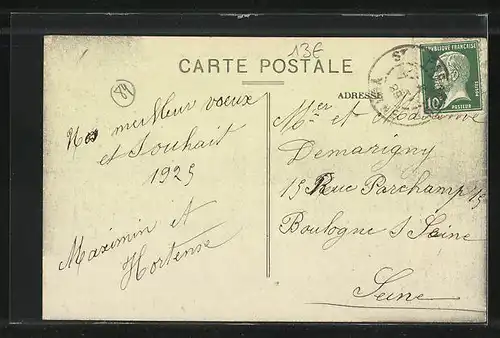 13E
CARTE POSTALE
ADRESSE
RÉPUBLIQUE FRANÇAISE
10c
POSTES
PASTEUR
89
Nos meilleur voeux
et Souhait
1925
Maximin et
Hortense
Mr et Madame
Demarigny
15 Rue Parchamp 15
Boulogne s Seine
Seine